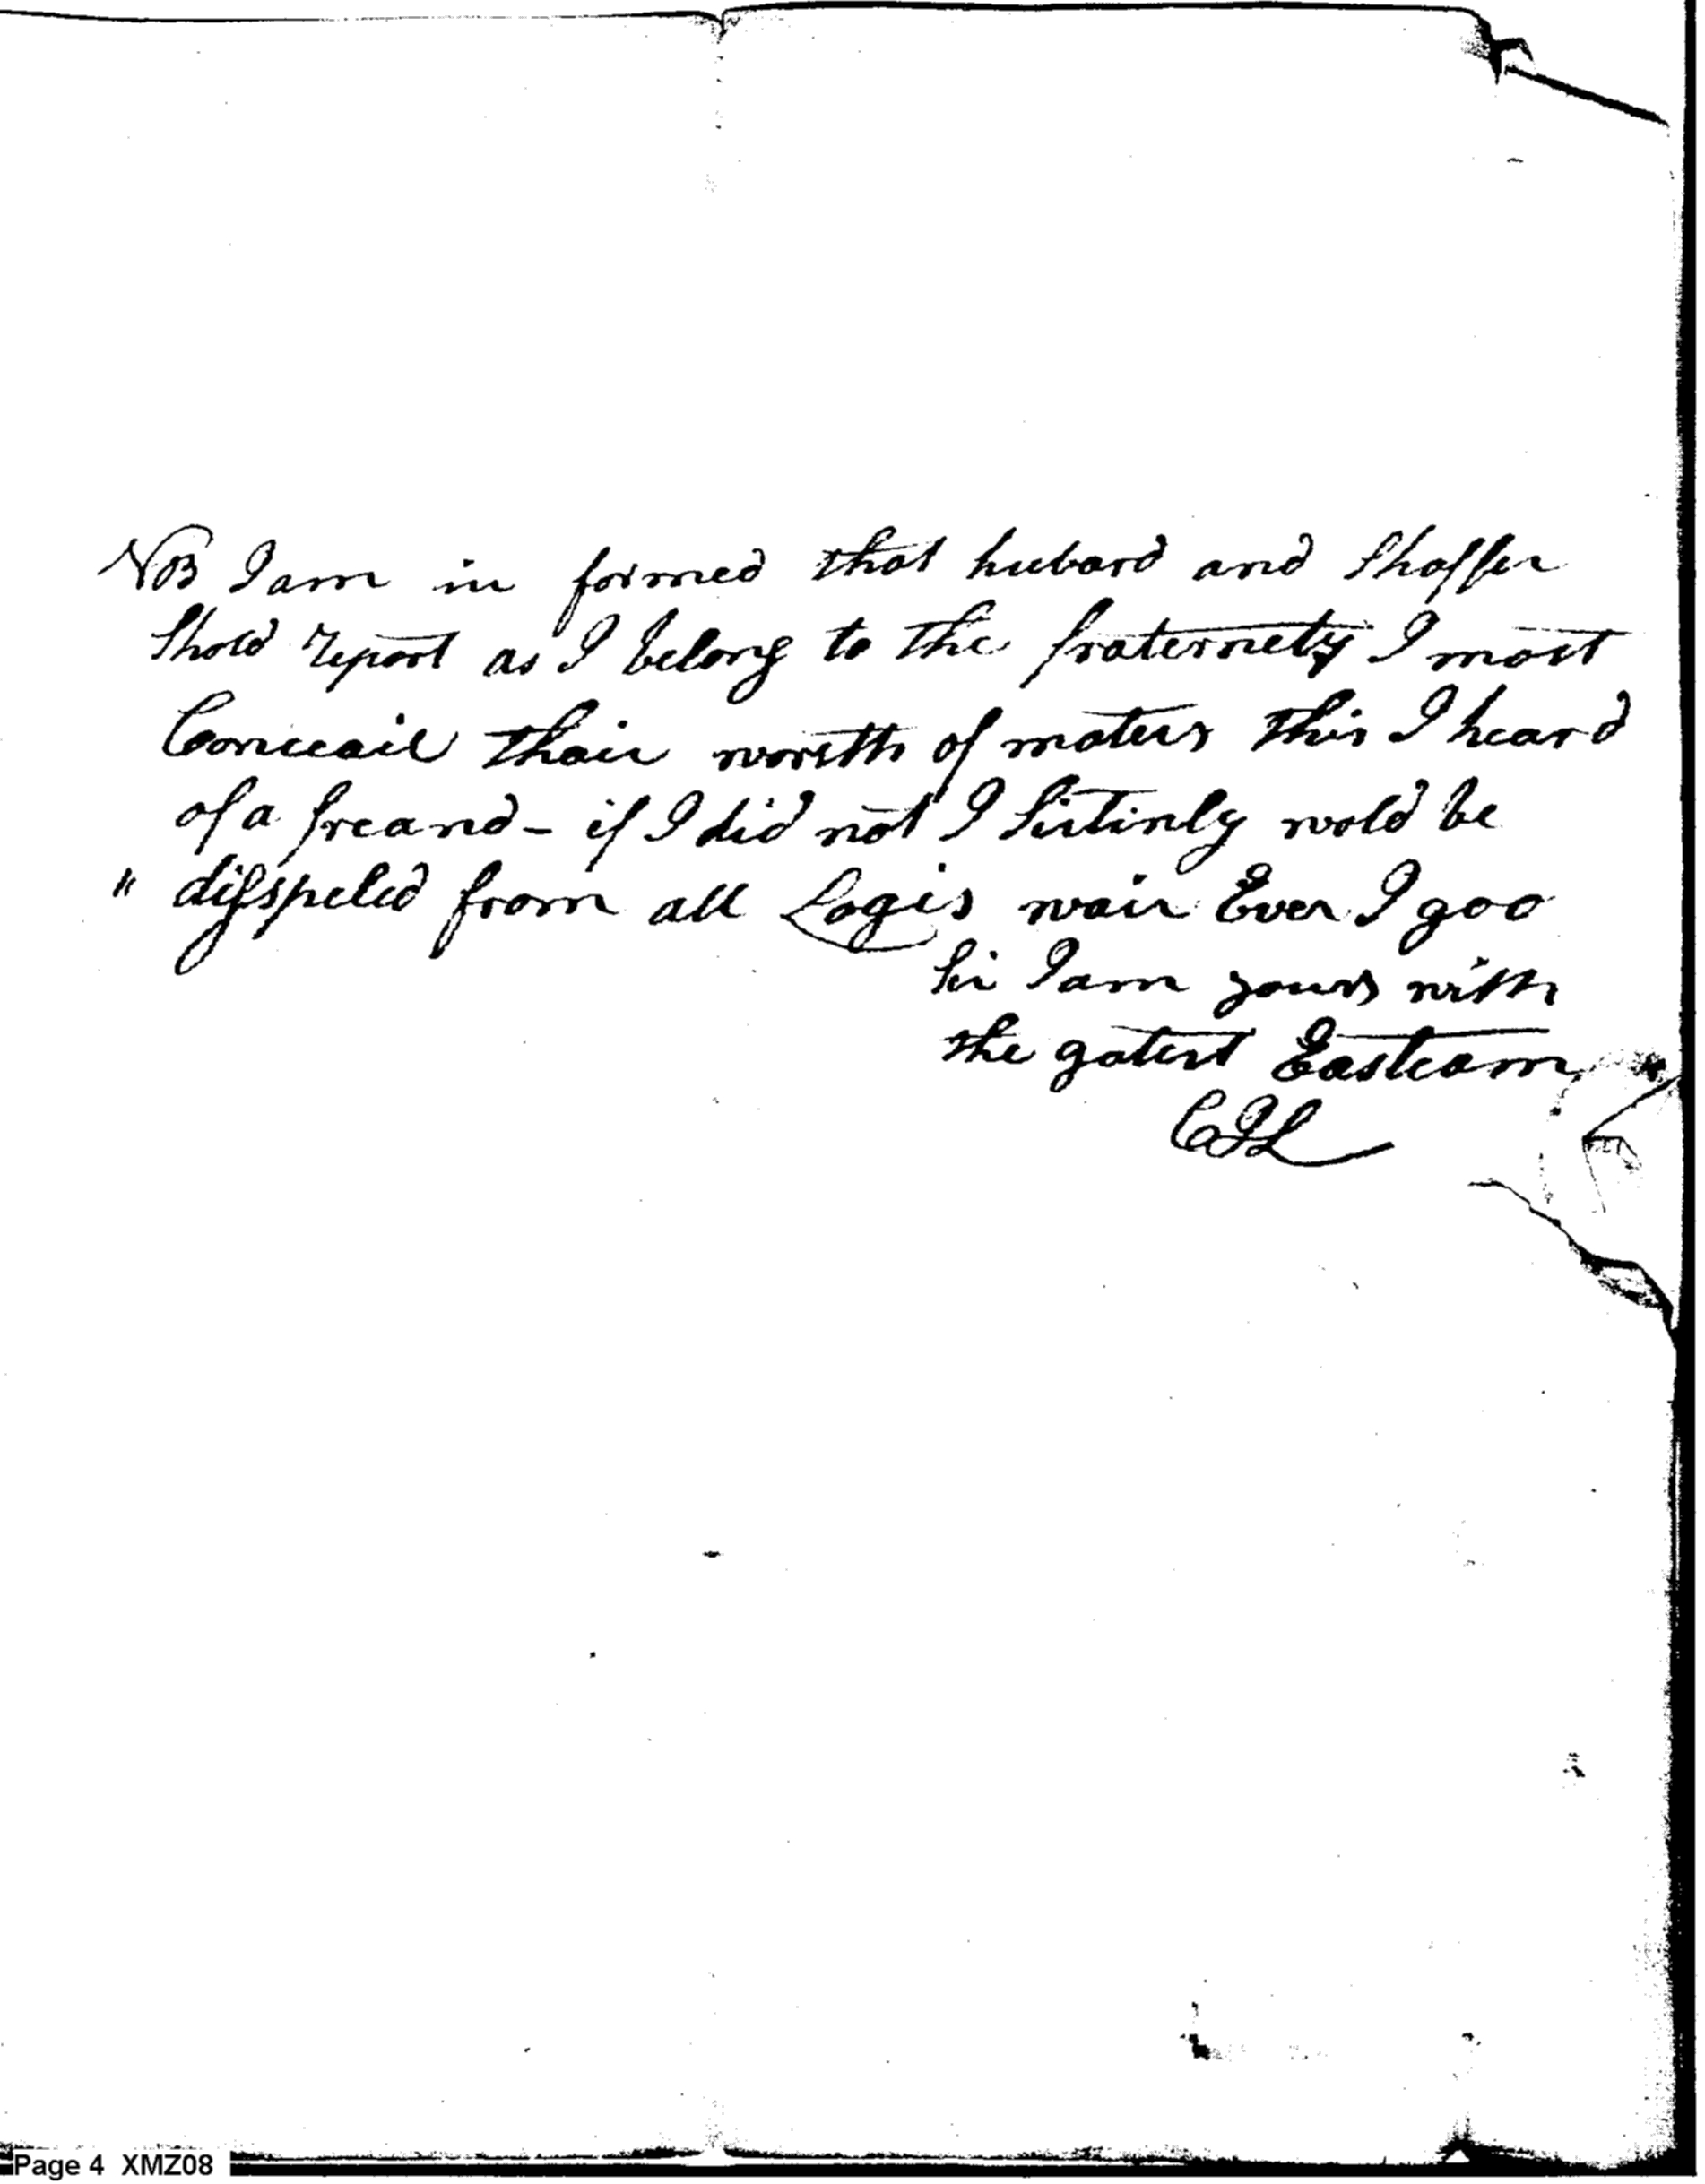 NB I am in formed that hubard and Shaffer
Shold report as I belong to the fraternety I most
Conceail thair worsth of maters this I heard
of a freand - if I did not I Sirtinly wold be
" disspeled from all Logis wair Ever I goo
Sir I am yours with
the gatest Easteam
CJL
Page 4 XMZ08